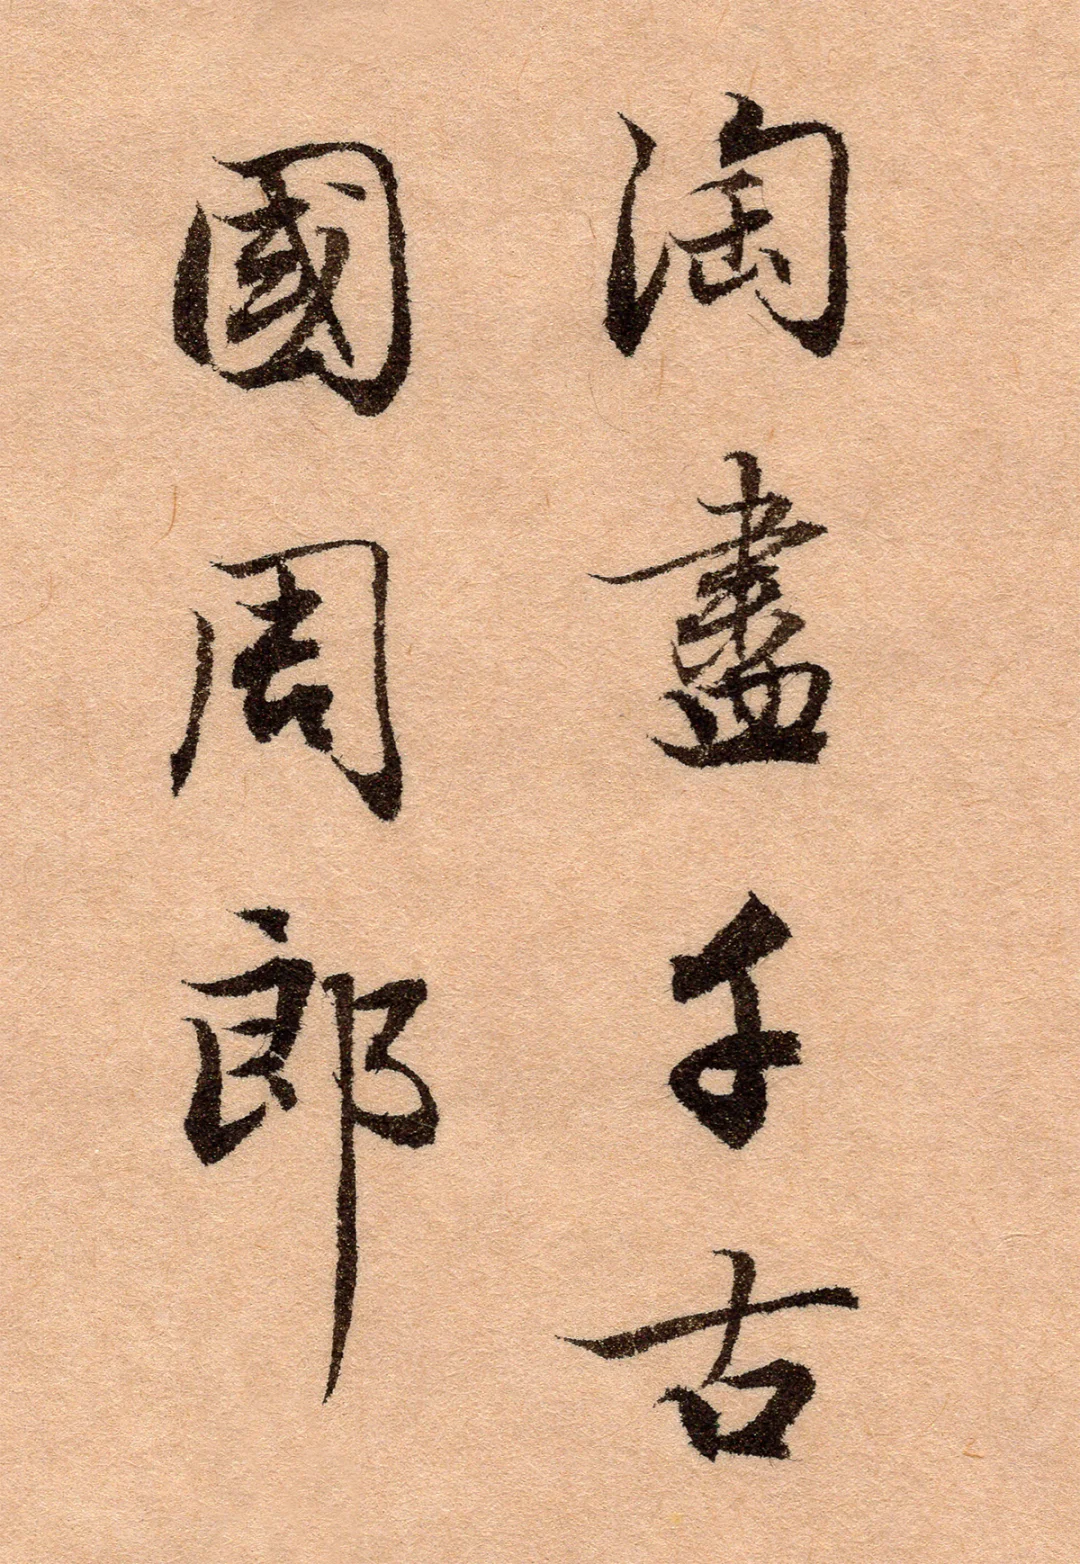 淘盡千古
國周郎